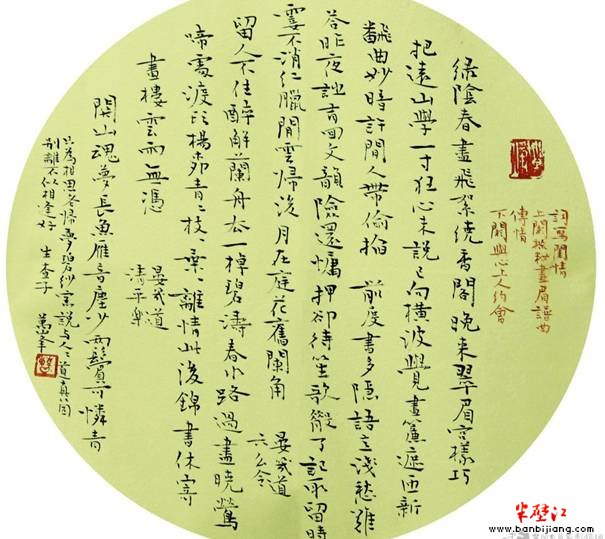 詞寫閨情
傳情
下闋與心上人約會
綠陰春盡飛絮繞香閣晚來翠眉宮樣巧
把遠山學一寸狂心未說已向橫波覺畫簾遮匝新
翻曲妙暗許閒人帶偷掐 前度書多隱語意淺愁難
答昨夜詩有回文韻險還慵押卻待笙歌散了記取留時
霎不消紅蠟閒雲歸後月在庭花舊闌角
晏幾道
六么令
留人不住醉解蘭舟去一棹碧濤春水路過盡曉鶯
啼處渡頭楊柳青青枝枝葉葉離情此後錦書休寄
畫樓雲雨無憑
晏幾道
清平樂
關山魂夢長魚雁音塵少兩鬢可憐青
只為相思老歸夢碧紗窗說與人人道真個
別離不似相逢好 生查子
半壁江
www.banbijiang.com